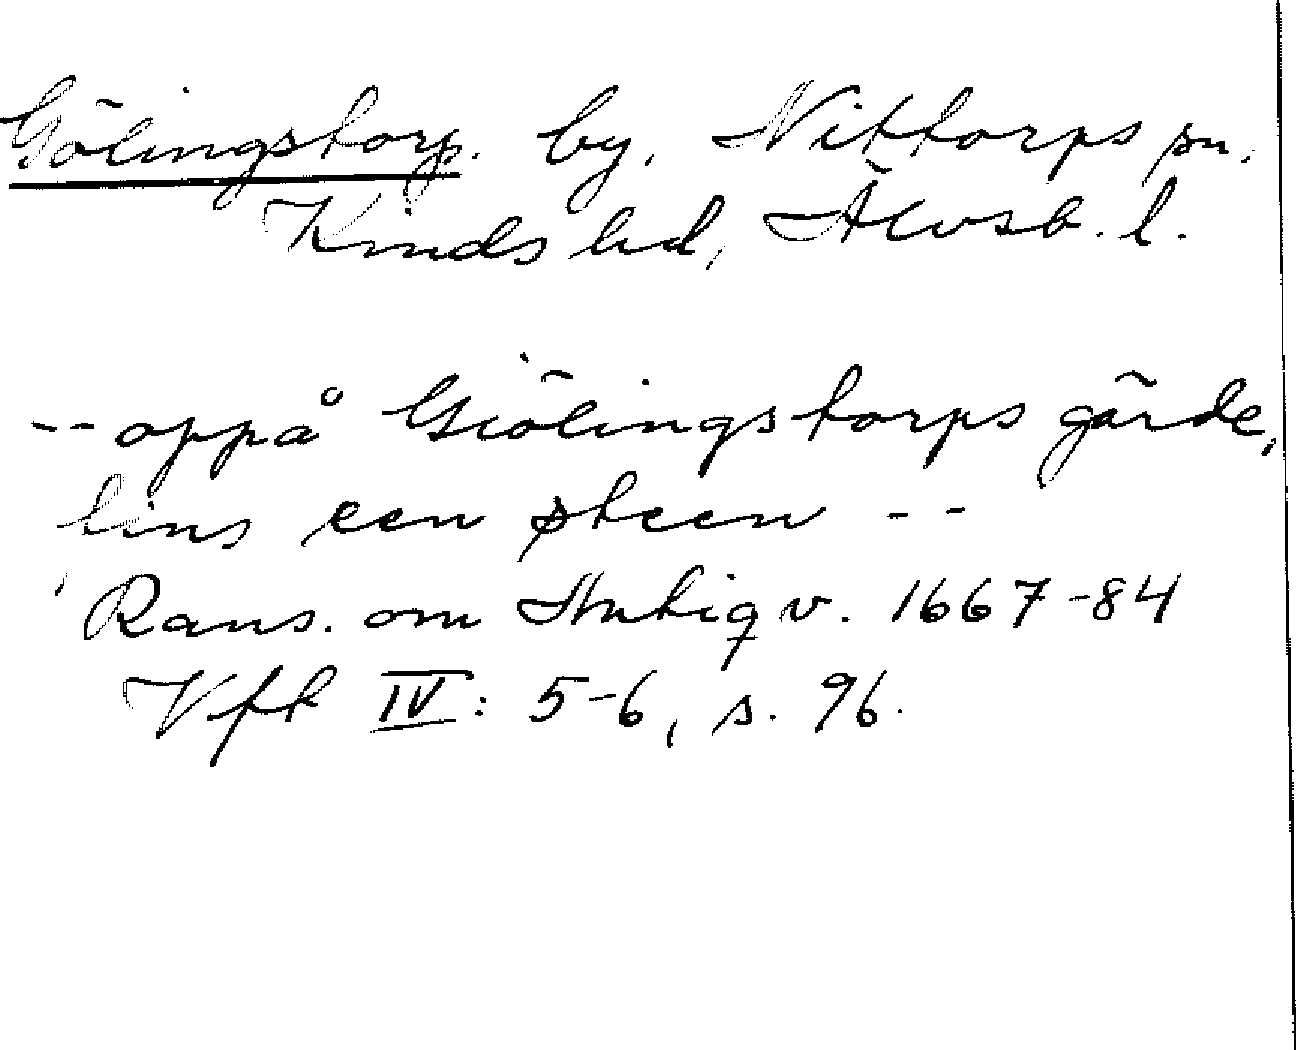 Gölingstorp. by, Nittorps sn.
Kinds hd, Älvsb. l.
-- oppå Giölingstorps gärde,
lins een steen --
Rans. om Antiqv. 1667-84
Vfk IV: 5-6, s. 96.